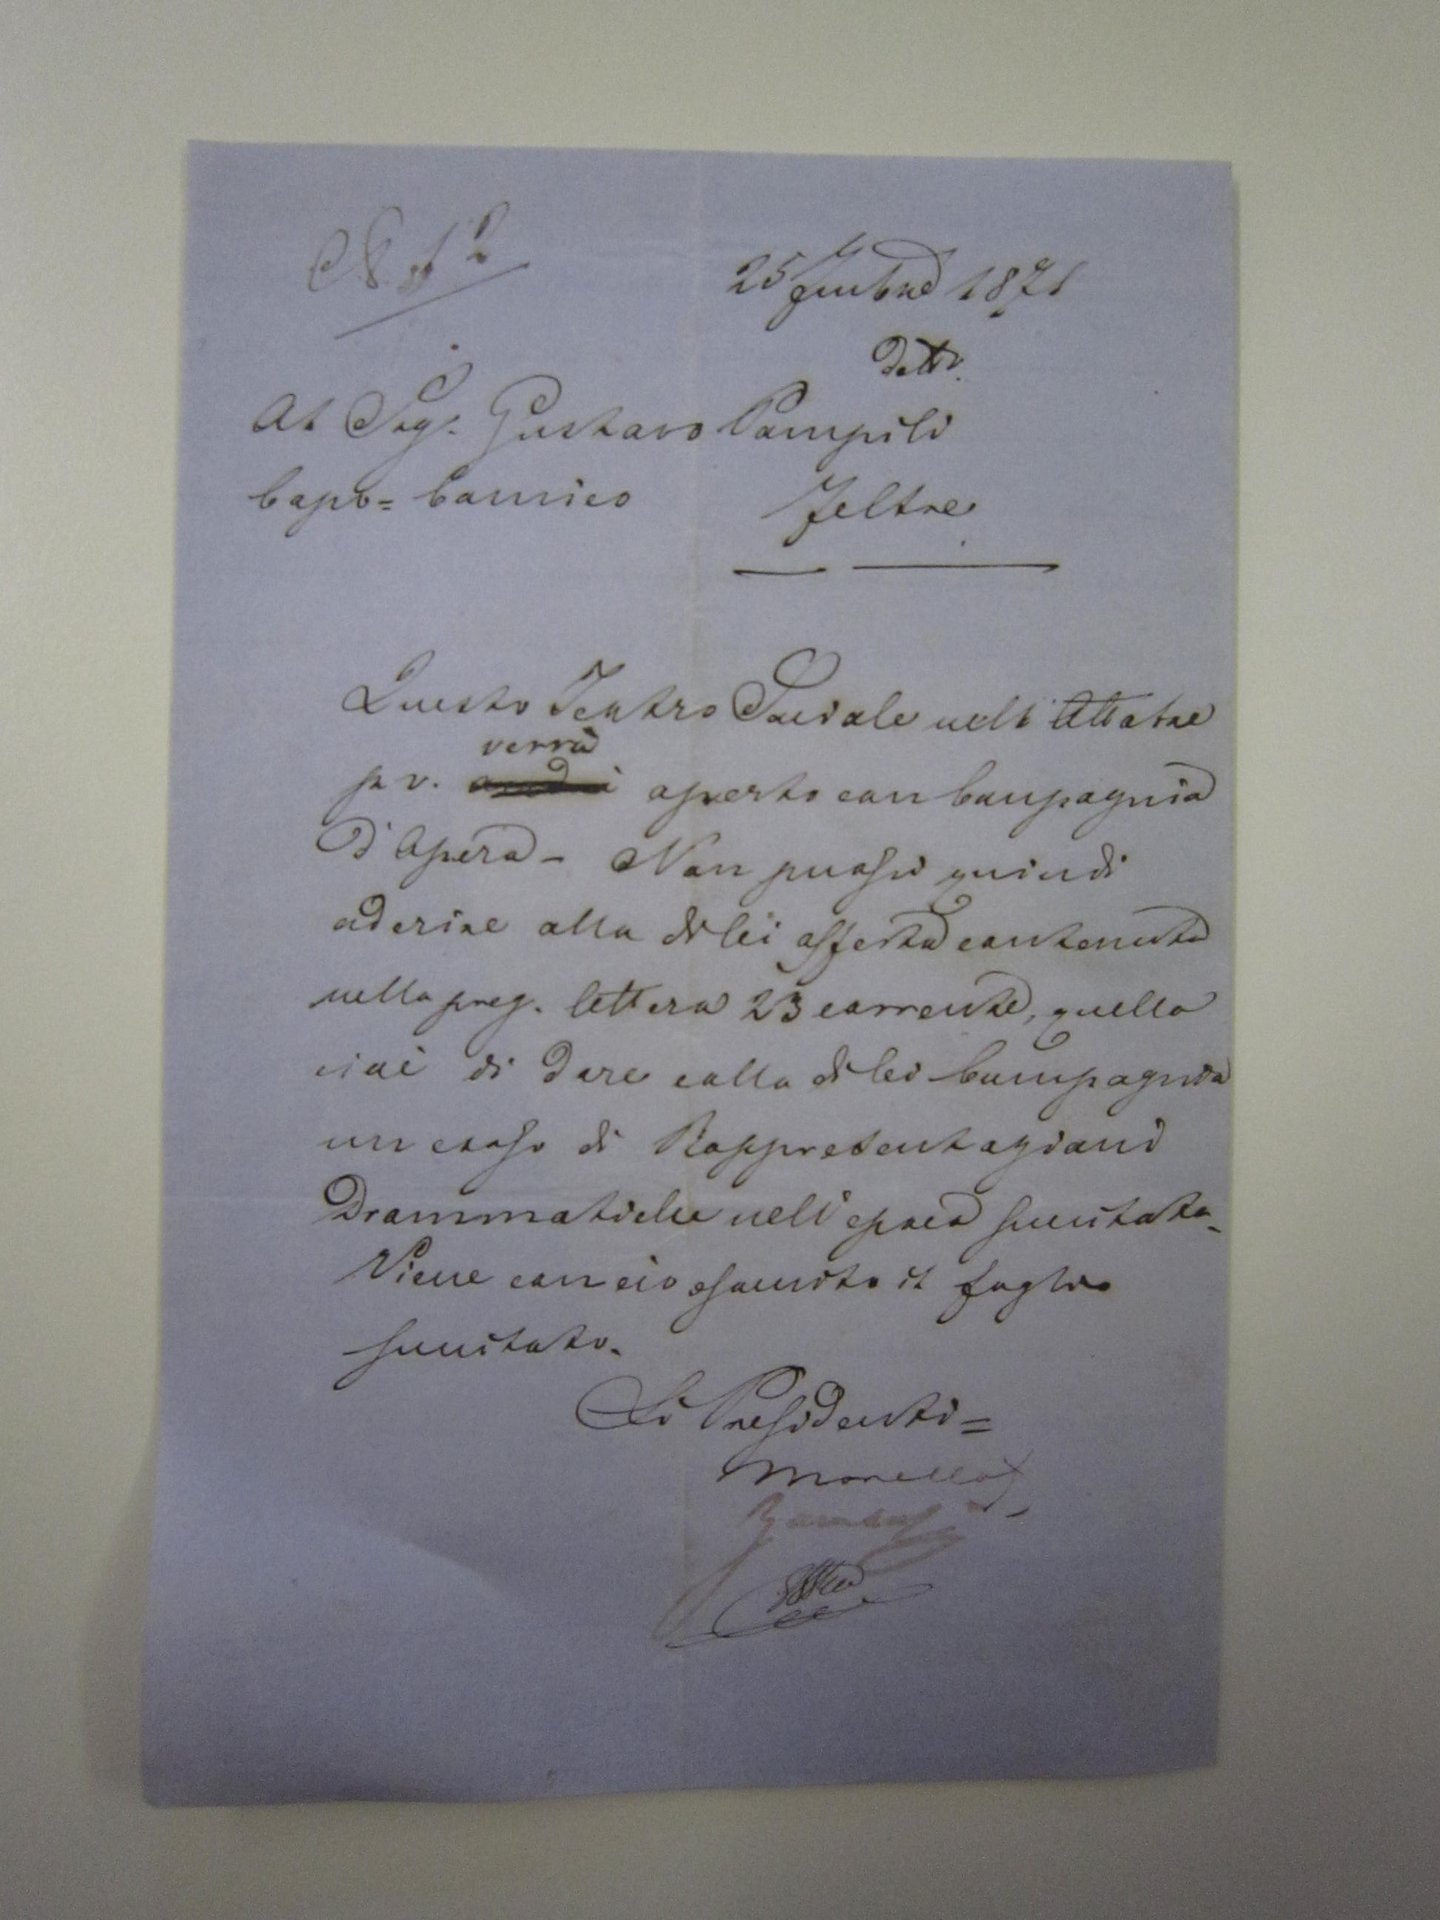 N. 12
25 1871
detto
Al Sigr. Gustavo Pampili
Capo=Comico Feltre
Questo Teatro Sociale nell' Ottobre
verrà
p. v. aperto con Compagnia
d'Opera - Non puossi quindi
aderire alla di lei offerta contenuta
nella preg. lettera 23 corrente, quella
cioè di dare colla di lei Compagnia
un corso di Rappresentazioni
Drammatiche nell' epoca sucitata -
Viene con ciò esaurito il foglio
sucitato.
Li Presidenti =
Morello